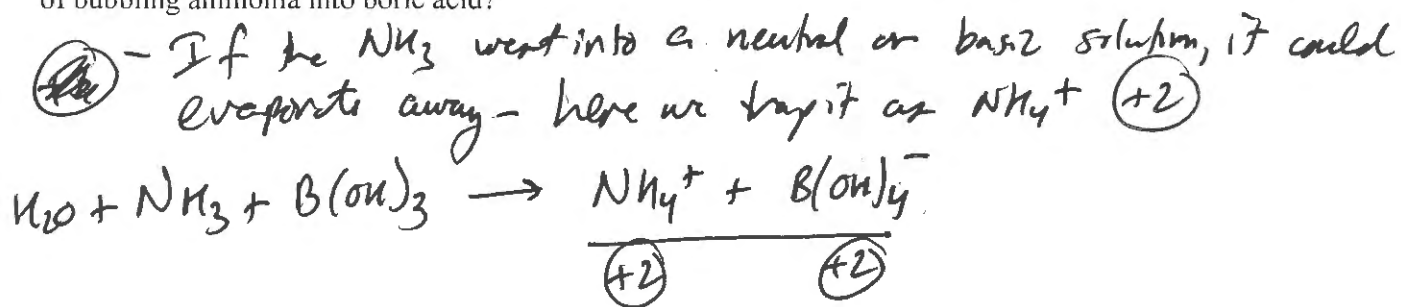 of bubbling ammonia into boric acid?
- If the NH3 went into a neutral or basic solution, it could
evaporate away - here we trap it as NH4+ (+2)
H2O + NH3 + B(OH)3 → NH4+ + B(OH)4-
+2 +2